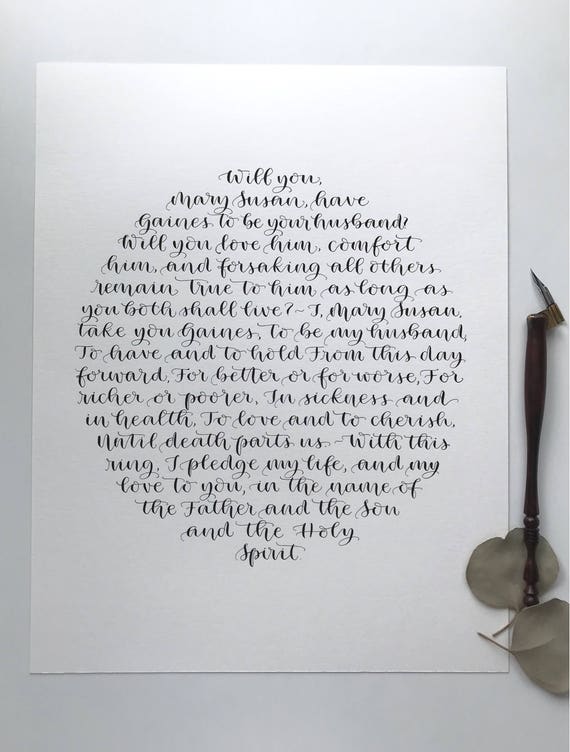 Will you,
Mary Susan, have
Gaines to be your husband?
Will you love him, comfort
him, and forsaking all others
remain true to him as long as
you both shall live? ~ I, Mary Susan,
take you Gaines, To be my husband,
To have and to hold From this day
forward, For better or for worse, For
richer or poorer, In sickness and
in health, To love and to cherish,
Until death parts us. ~ With this
ring, I pledge my life, and my
love to you, in the name of
the Father and the Son
and the Holy
Spirit.